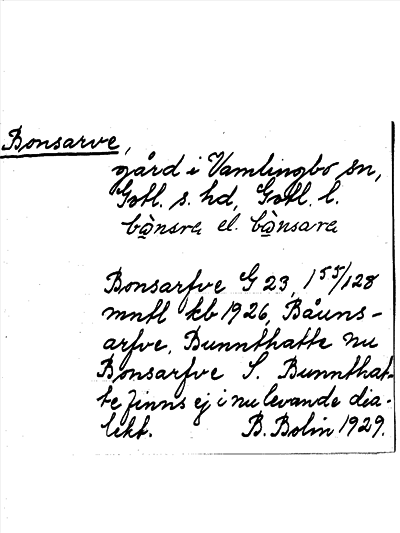 Bonsarve,
gård i Vamlingbo sn,
Gotl. s. hd, Gotl. l.
bå̀nsra el. bå̀nsara
Bonsarfve G 23, 1 55/128
mntl kb 1926, Båuns-
arfve, Bunnthatte nu
Bonsarfve S. Bunnthat-
te finns ej i nu levande dia-
lekt. B. Bolin 1929.